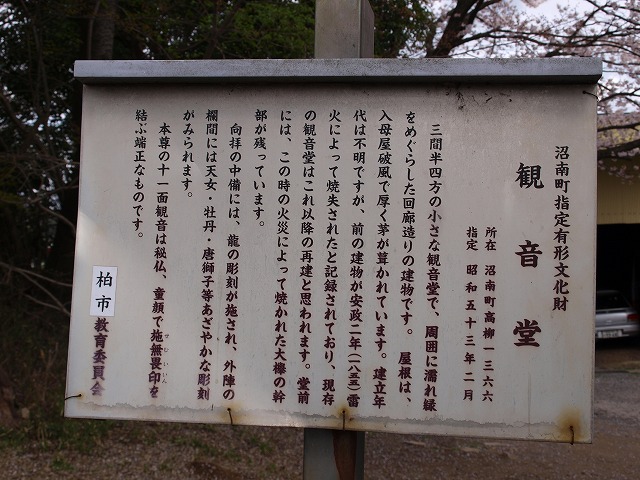 沼南町指定有形文化財
観音堂
所在 沼南町高柳一三六六
指定 昭和五十三年二月
三間半四方の小さな観音堂で、周囲に濡れ縁
をめぐらした回廊造りの建物です。屋根は、
入母屋破風で厚く茅が葺かれています。建立年
代は不明ですが、前の建物が安政二年(一八五五)雷
火によって焼失されたと記録されており、現存
の観音堂はこれ以降の再建と思われます。堂前
には、この時の火災によって焼かれた大欅の幹
部が残っています。
向拝の中備には、龍の彫刻が施され、外陣の
欄間には天女・牡丹・唐獅子等あざやかな彫刻
がみられます。
本尊の十一面観音は秘仏、童顔で施無畏印を
せむいいん
結ぶ端正なものです。
柏市教育委員会